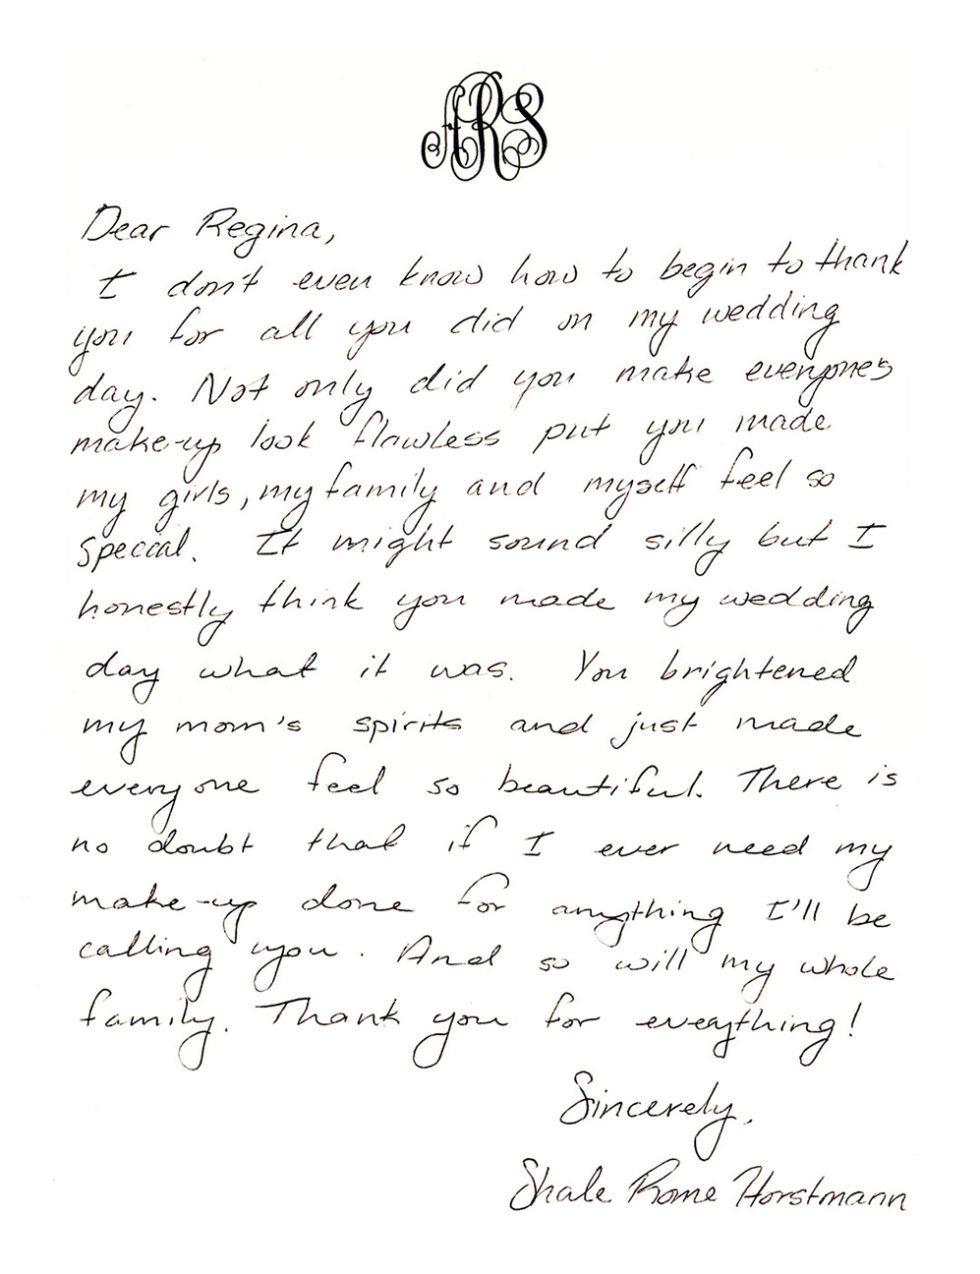 ARS
Dear Regina,
I don't even know how to begin to thank
you for all you did on my wedding
day. Not only did you make everyones
make-up look flawless put you made
my girls, my family and myself feel so
speccal. It might sound silly but I
honestly think you made my wedding
day what it was. You brightened
my mom's spirits and just made
everyone feel so beautiful. There is
no doubt that if I ever need my
make-up done for anything I'll be
calling you. And so will my whole
family. Thank you for eveything!
Sincerely,
Shale Rome Horstmann